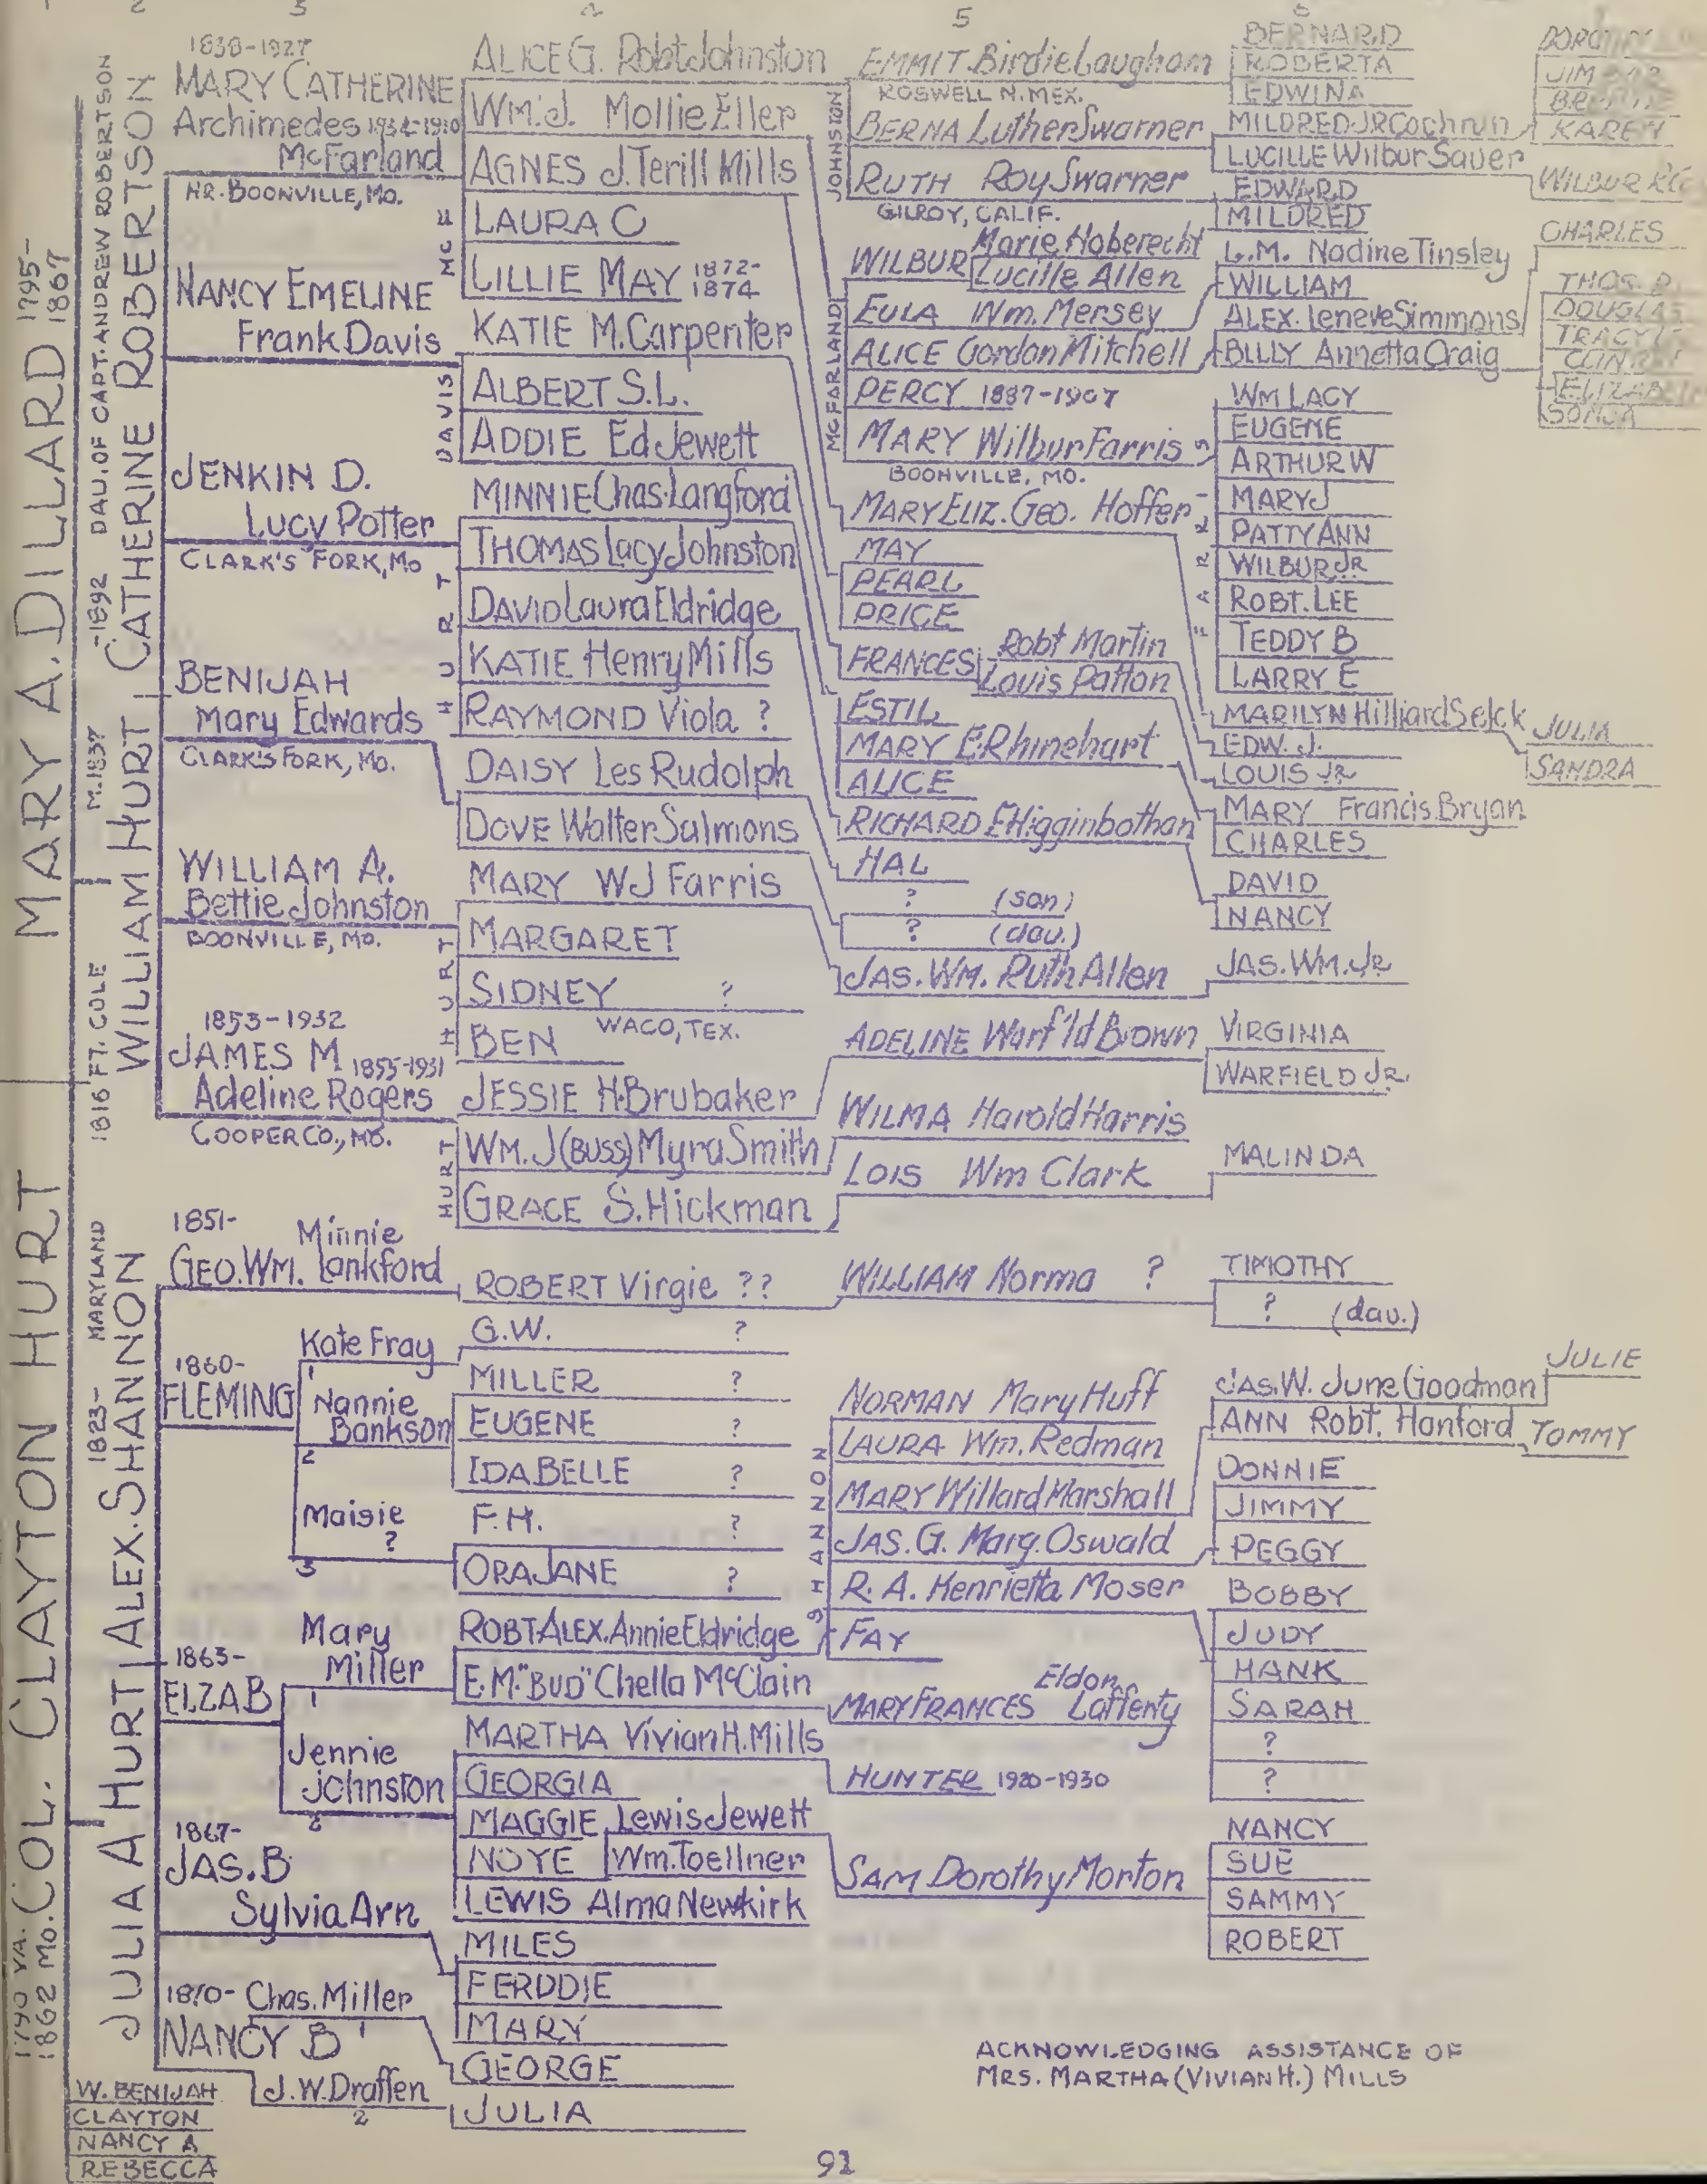 1
2
3
4
5
6
1790 VA. COL. CLAYTON HURT MARY A. DILLARD 1795-
1862 MO. 1867
1816 FT. COLE M.1837 -1892 DAU. OF CAPT. ANDREW ROBERTSON
WILLIAM HURT CATHERINE ROBERTSON
1823- MARYLAND
JULIA A HURT ALEX. SHANNON
W. BENIJAH
CLAYTON
NANCY A
REBECCA
1838-1927
MARY CATHERINE
Archimedes 1834-1910
McFarland
NR. BOONVILLE, MO.
NANCY EMELINE
Frank Davis
JENKIN D.
Lucy Potter
CLARK'S FORK, MO
BENIJAH
Mary Edwards
CLARK'S FORK, MO.
WILLIAM A.
Bettie Johnston
BOONVILLE, MO.
1853-1932
JAMES M 1855-1931
Adeline Rogers
COOPER CO., MO.
1851- Minnie
GEO. WM. Lankford
1860-
FLEMING
Kate Fray
1
Nannie
Bankson
2
Maisie
?
3
1863-
ELZA B
Mary
Miller
1
Jennie
Johnston
2
1867-
JAS. B
Sylvia Arn
Chas. Miller
NANCY B 1
J.W. Draffen
2
ALICE G. Robt Johnston
WM. J. Mollie Eller
AGNES J. Terill Mills
LAURA C
LILLIE MAY 1872-
1874
KATIE M. Carpenter
MC F
DAVIS
ALBERT S.L.
ADDIE Ed Jewett
MINNIE Chas. Langford
THOMAS Lacy Johnston
DAVID Laura Eldridge
KATIE Henry Mills
RAYMOND Viola ?
HURT
DAISY Les Rudolph
DOVE Walter Salmons
MARY WJ Farris
MARGARET
SIDNEY ?
WACO, TEX.
BEN
HURT
JESSIE H. Brubaker
WM. J (BUSS) Myra Smith
GRACE S. Hickman
HURT
ROBERT Virgie ??
G.W. ?
MILLER ?
EUGENE ?
IDA BELLE ?
F.H. ?
ORA JANE ?
ROBT ALEX. Annie Eldridge
E.M. "BUD" Chella McClain
MARTHA Vivian H. Mills
GEORGIA
MAGGIE Lewis Jewett
NOYE Wm. Toellner
LEWIS Alma Newkirk
MILES
FERDDIE
MARY
GEORGE
JULIA
JOHNSTON
EMMIT Birdie Laugham
ROSWELL N. MEX.
BERNA Luther Swarner
RUTH Roy Swarner
GILROY, CALIF.
MCFARLAND
WILBUR Marie Hoberecht
Lucille Allen
EULA Wm. Mersey
ALICE Gordon Mitchell
PERCY 1887-1907
MARY Wilbur Farris
BOONVILLE, MO.
MARY ELIZ. GEO. Hoffer
MAY
PEARL
PRICE
FRANCES Robt Martin
Louis Patton
ESTIL
MARY E. Rhinehart
ALICE
RICHARD E Higginbothan
HAL
? (son)
? (dau.)
JAS. WM. Ruth Allen
ADELINE Warf'ld Brown
WILMA Harold Harris
LOIS Wm Clark
WILLIAM Norma ?
SHANNON
NORMAN Mary Huff
LAURA Wm. Redman
MARY Willard Marshall
JAS. G. Marg. Oswald
R. A. Henrietta Moser
FAY
MARY FRANCES Eldon
Lafferty
HUNTER 1920-1930
SAM Dorothy Morton
BERNARD
ROBERTA
EDWINA
MILDRED JR Cochrun
LUCILLE Wilbur Sauer
EDWARD
MILDRED
L.M. Nadine Tinsley
WILLIAM
ALEX. Ieneve Simmons
BILLY Annetta Craig
FARRIS
WM LACY
EUGENE
ARTHUR W
MARY J
PATTY ANN
WILBUR JR
ROBT. LEE
TEDDY B
LARRY E
MARILYN Hilliard Selck
EDW. J.
LOUIS JR
MARY Francis Bryan
CHARLES
DAVID
NANCY
JAS. WM. JR
VIRGINIA
WARFIELD JR.
MALINDA
TIMOTHY
? (dau.)
JAS. W. June Goodman
ANN Robt. Hanford
DONNIE
JIMMY
PEGGY
BOBBY
JUDY
HANK
SARAH
?
?
NANCY
SUE
SAMMY
ROBERT
JIM
KAREN
WILBUR
CHARLES
THOS.
DOUGLAS
TRACY
SONJA
JULIA
SANDRA
JULIE
TOMMY
ACKNOWLEDGING ASSISTANCE OF
MRS. MARTHA (VIVIAN H.) MILLS
91